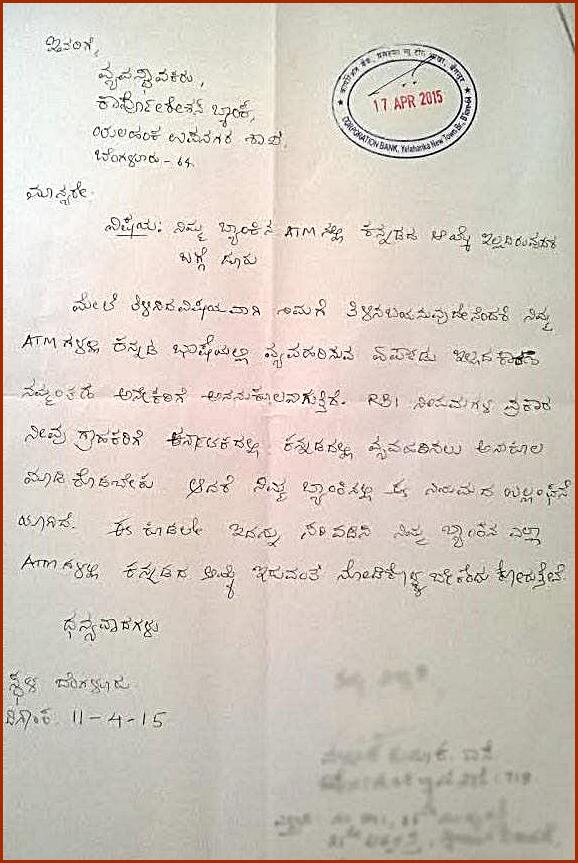 ಇವರಿಗೆ,
ವ್ಯವಸ್ಥಾಪಕರು,
ಕಾರ್ಪೋರೇಶನ್ ಬ್ಯಾಂಕ್,
ಯಲಹಂಕ ಉಪನಗರ ಶಾಖೆ,
ಬೆಂಗಳೂರು - 64.
17 APR 2015
CORPORATION BANK, Yelahanka New Town Br., B'lore-64
ಮಾನ್ಯರೇ.
ವಿಷಯ: ನಿಮ್ಮ ಬ್ಯಾಂಕಿನ ATM ನಲ್ಲಿ ಕನ್ನಡದ ಆಯ್ಕೆ ಇಲ್ಲದಿರುವುದರ
ಬಗ್ಗೆ ದೂರು
ಮೇಲೆ ತಿಳಿಸಿದ ವಿಷಯವಾಗಿ ತಮಗೆ ತಿಳಿಸಬಯಸುವುದೇನೆಂದರೆ ನಿಮ್ಮ
ATM ಗಳಲ್ಲಿ ಕನ್ನಡ ಭಾಷೆಯಲ್ಲಿ ವ್ಯವಹರಿಸುವ ಏರ್ಪಾಡು ಇಲ್ಲದ ಕಾರಣ
ನಮ್ಮಂತಹ ಅನೇಕರಿಗೆ ಅನಾನುಕೂಲವಾಗುತ್ತಿದೆ. RBI ನಿಯಮಗಳ ಪ್ರಕಾರ
ನೀವು ಗ್ರಾಹಕರಿಗೆ ಕರ್ನಾಟಕದಲ್ಲಿ ಕನ್ನಡದಲ್ಲಿ ವ್ಯವಹರಿಸಲು ಅನುಕೂಲ
ಮಾಡಿ ಕೊಡಬೇಕು ಆದರೆ ನಿಮ್ಮ ಬ್ಯಾಂಕಿನಲ್ಲಿ ಈ ನಿಯಮದ ಉಲ್ಲಂಘನೆ
ಯಾಗಿದೆ. ಈ ಕೂಡಲೇ ಇದನ್ನು ಸರಿಪಡಿಸಿ ನಿಮ್ಮ ಬ್ಯಾಂಕಿನ ಎಲ್ಲಾ
ATM ಗಳಲ್ಲಿ ಕನ್ನಡದ ಆಯ್ಕೆ ಇರುವಂತೆ ನೋಡಿಕೊಳ್ಳ ಬೇಕೆಂದು ಕೋರುತ್ತೇವೆ.
ಧನ್ಯವಾದಗಳು
ಸ್ಥಳ ಬೆಂಗಳೂರು
ದಿನಾಂಕ. 11-4-15